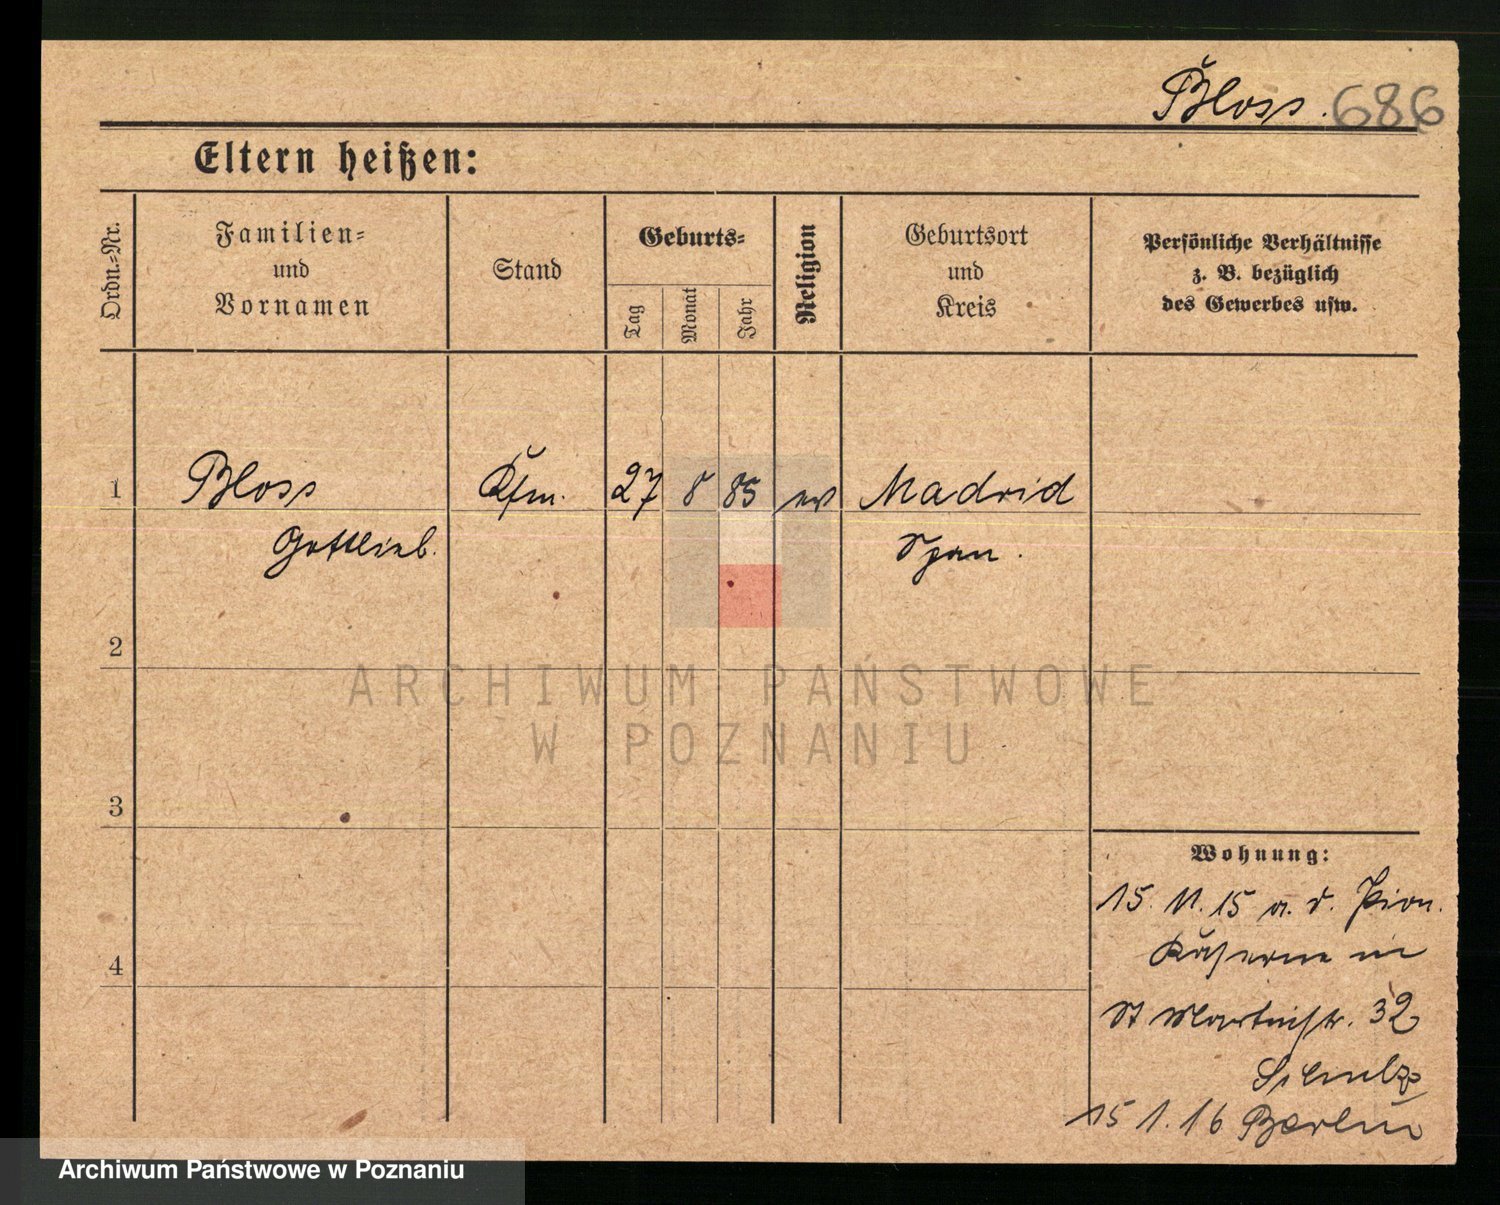 Bloss. 686
Eltern heißen:
Ordn.-Nr.
Familien-
und
Vornamen
Stand
Geburts-
Tag
Monat
Jahr
Religion
Geburtsort
und
Kreis
Persönliche Verhältnisse
z. B. bezüglich
des Gewerbes usw.
1 Bloss Kfm. 27 8 85 ev Madrid
Gottlieb. Span.
2
3
4
Wohnung:
15. 11. 15 a. d. Pion.
Kaserne in
St Martinstr. 32
Schulz
15 1. 16 Berlin
ARCHIWUM PAŃSTWOWE
W POZNANIU
Archiwum Państwowe w Poznaniu